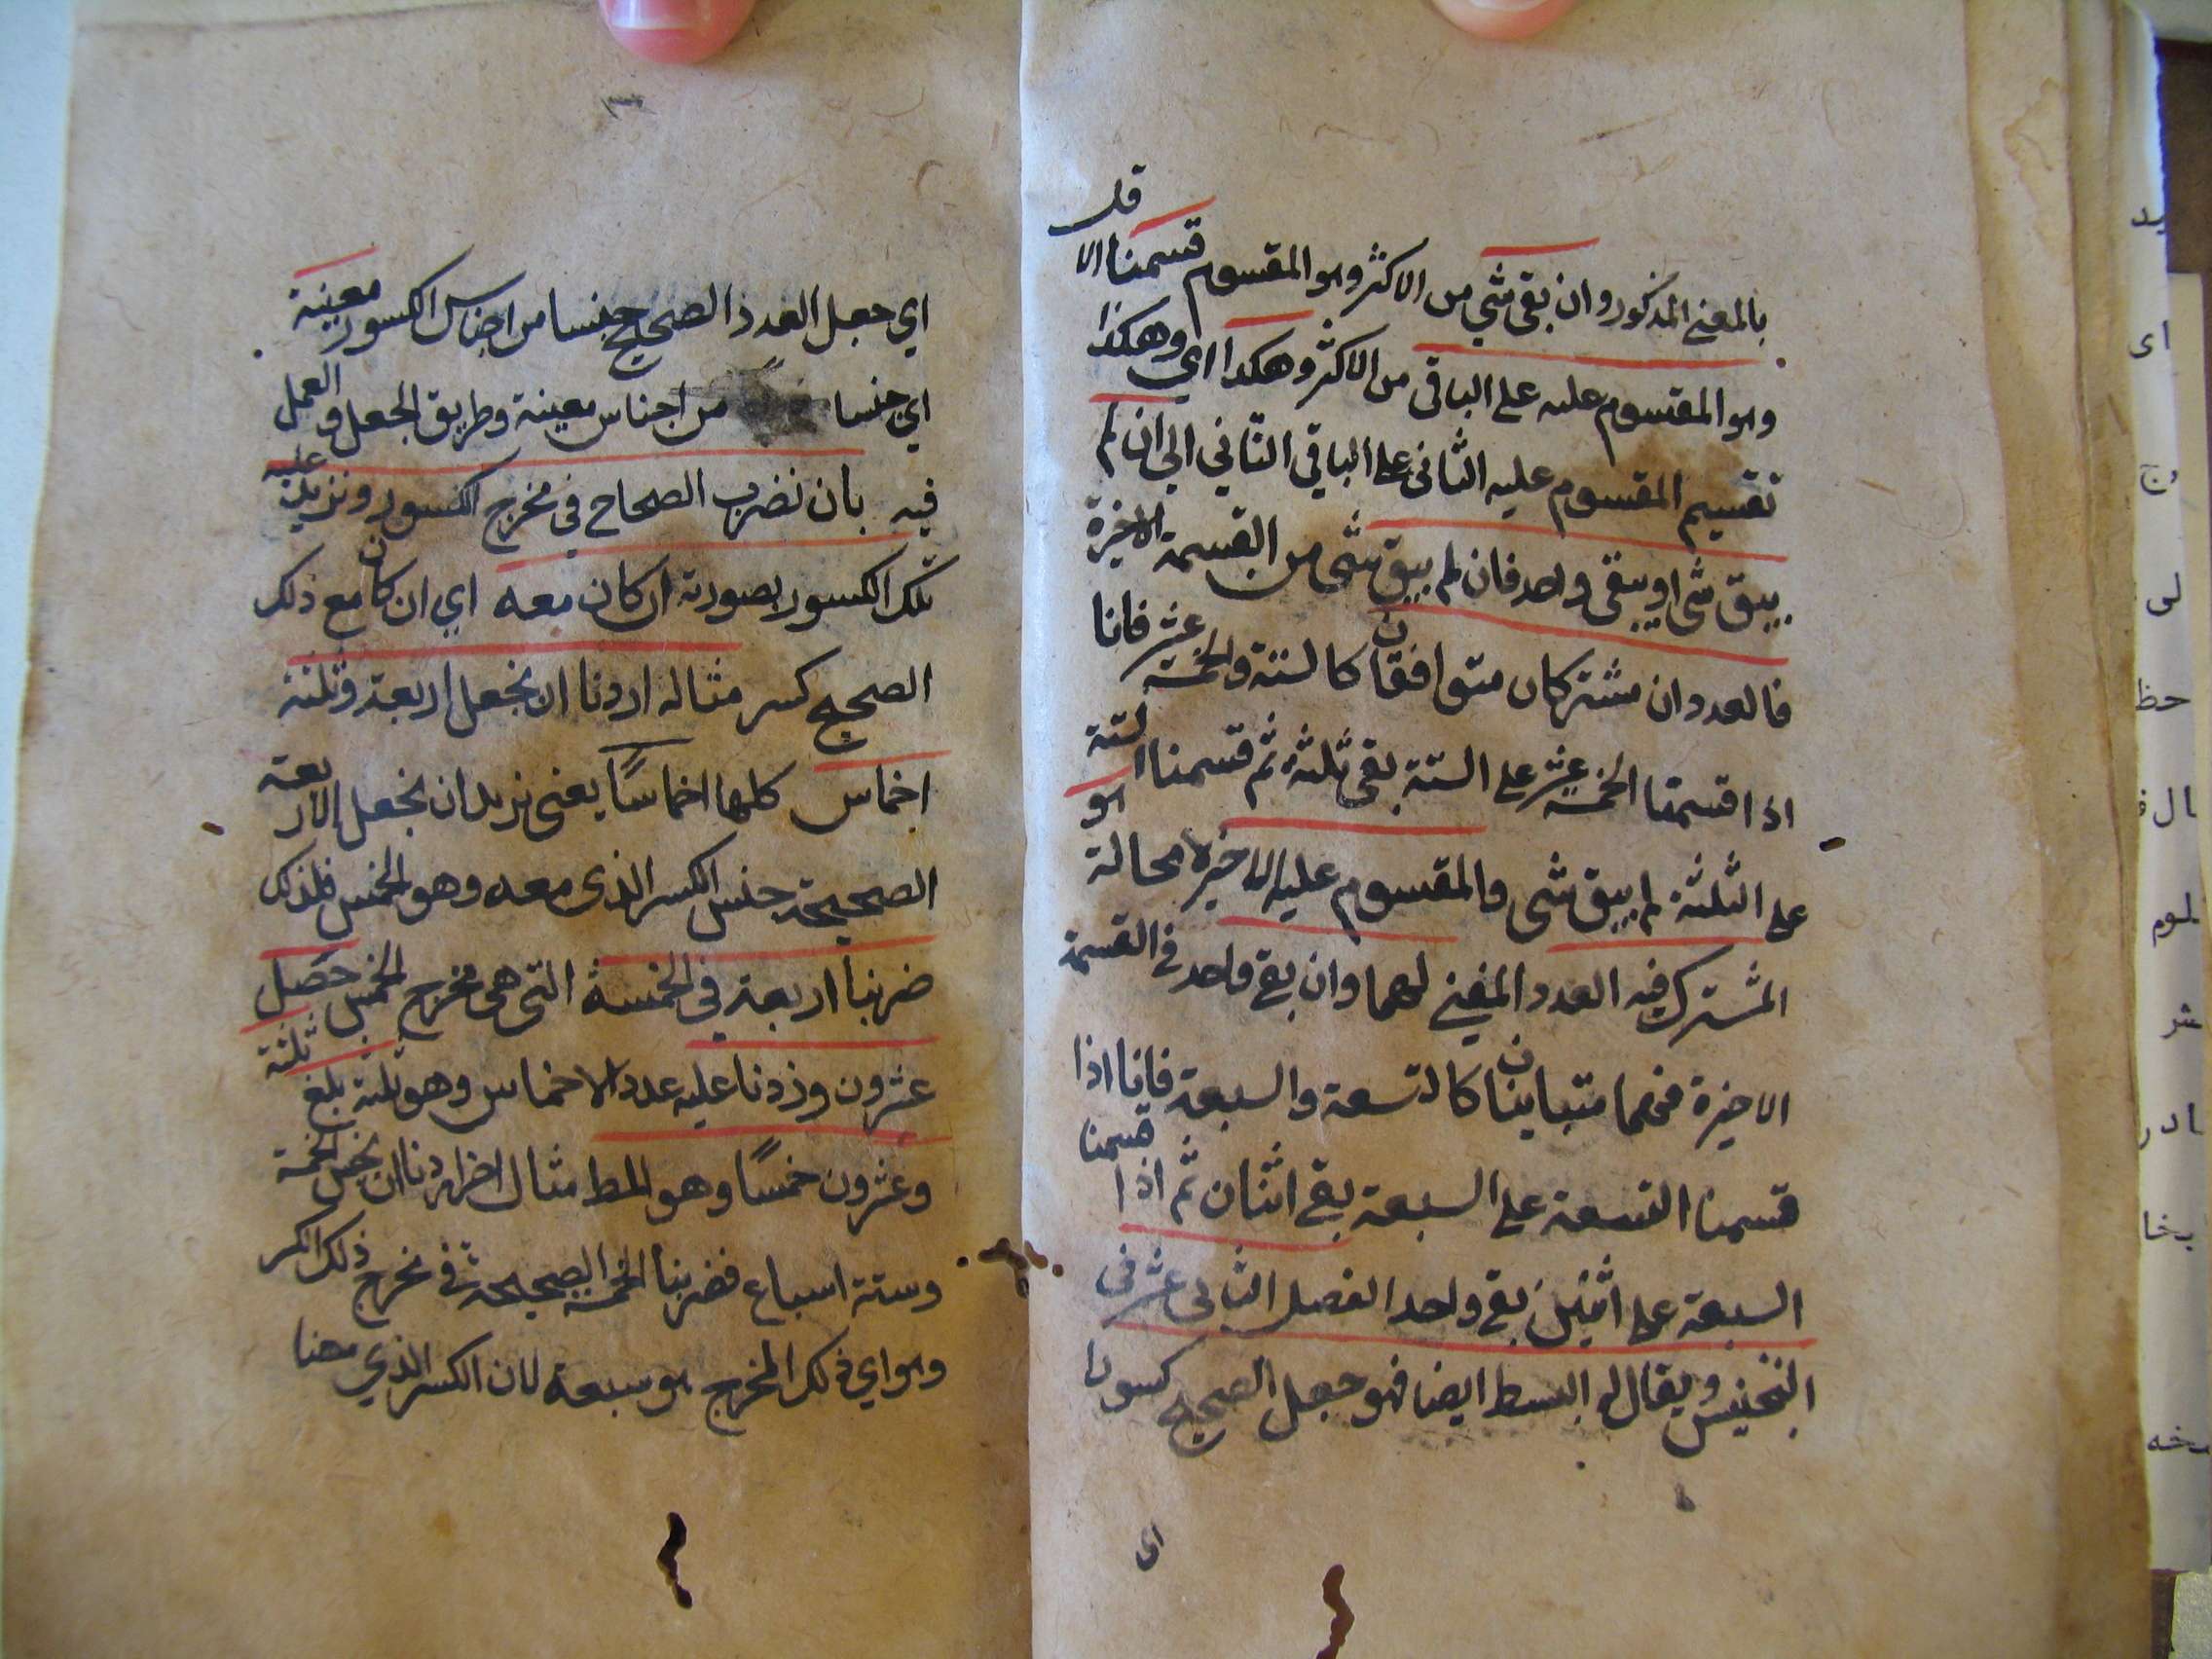 بالمعنى المذكور وان بقى شي من الاكثر وهو المقسوم قسمنا الاقل
وهو المقسوم عليه على الباقي من الاكثر وهكذا اي وهكذا
تقسيم المقسوم عليه الثاني على الباقي الثاني الى ان لم
يبق شي او يبقى واحد فان لم يبق شي من القسمة الاخيرة
فالعددان مشتركان متوافقان كالستة والخمسة عشر فانا
اذا قسمنا الخمسة عشر على الستة بقى ثلثة ثم قسمنا الستة
على الثلثة لم يبق شى والمقسوم عليه الاخير لا محالة هو
المشترك فيه العدد المفنى لهما وان بقى واحد في القسمة
الاخيرة فهما متباينان كالتسعة والسبعة فانا اذا
قسمنا التسعة على السبعة بقى اثنان ثم اذا قسمنا
السبعة على اثنين بقى واحد الفصل الثاني عشر فى
التجنيس ويقال له البسط ايضا فهو جعل الصحيح كسورا
اى
اي جعل العدد الصحيح جنسا من اجناس الكسور معينة
اي جنسا من اجناس معينة وطريق الجعل والعمل
فيه بان نضرب الصحاح في مخرج الكسور ونزيد عليه
تلك الكسور بصورته ان كان معه اي ان كان مع ذلك
الصحيح كسر مثاله اردنا ان نجعل اربعة وثلثة
اخماس كلها اخماسًا يعنى نريد ان نجعل الاربعة
الصحيحة جنس الكسر الذى معه وهو الخمس فلذلك
ضربنا اربعة في الخمسة التي هي مخرج الخمس حصل
عشرون وزدنا عليه عدد الاخماس وهو ثلثة بلغ ثلثة
وعشرون خمسًا وهو المط مثال اخر اردنا ان نجنس الخمسة
وستة اسباع فضربنا الخمسة الصحيحة في مخرج ذلك الكسر
وهو اي ذلك المخرج هو سبعة لان الكسر الذي معنا